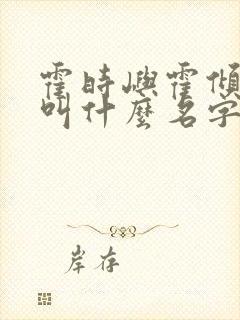 霍時嶼霍傾
叫什麼名字
岸存